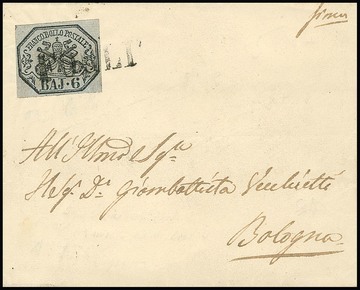 FRANCO BOLLO POSTALE
BAJ. 6
All'Illmo e Sig.
Giambattista Vecchietti
Bologna